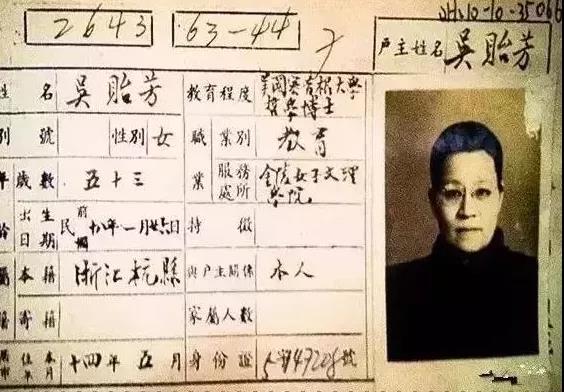 2643 63-44
戶主姓名 吳貽芳
姓 名 吳貽芳 教育程度 美國密省根大學
哲學博士
別 號 性別 女 職 業別 教育
年 歲數 五十三 業 服務處所 金陵女子文理學院
齡 出生日期 民前國 十八年一月廿六日 特徵
屬 本籍 浙江杭縣 與戶主關係 本人
籍 寄籍 家屬人數
十四年五月 身份證 號